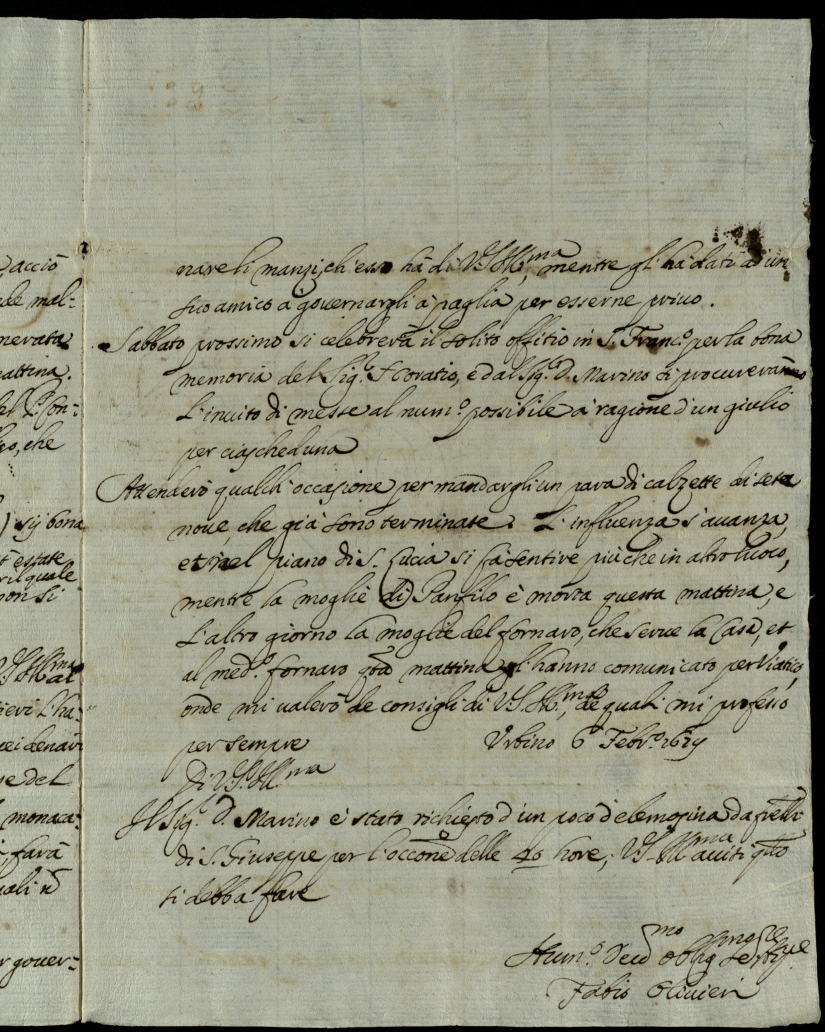 acciò
de mal-
nevata
mattina.
che
sij bona
et estate
quale
non si
V.S. Ill.ma
L'ha-
denari
se del
monaca-
farà
quali
gover-
nare li manzi, ch'esso hà di V.S. Ill.ma, mentre gl'hà dati a un
suo amico à governargli à paglia per esserne privo.
Sabbato prossimo si celebrerà il solito offitio in S. Franc.o per la bona
memoria del Sig.r Horatio, e dal Sig.r D. Marino si procureranno
L'invito di messe al num.o possibile à ragione d'un giulio
per ciascheduna
Attenderò qualch'occasione per mandargli un para di calzette di seta
nove, che già sono terminate. L'influenza s'avanza,
et nel piano di S. Lucia si fà sentire più che in altro luoco,
mentre la moglie di Panfilo è morta questa mattina, e
L'altro giorno la moglie del fornaro, che serve la Casa, et
al med.o fornaro q.ta mattina gl'hanno comunicato per Viatico,
onde mi valerò de consigli di V.S. Ill.ma, de quali mi professo
per sempre Urbino 6 Febr.o
Di V.S. Ill.ma
Il Sig.r D. Marino è stato richiesto d'un poco d'elemosina da frelli
di S. Giuseppe per l'occ.one delle 40 hore; V.S. Ill.ma aviti q.to
si debba fare
Hum.o Dev.mo Oblig.mo Ser.re
Fabio Olivieri